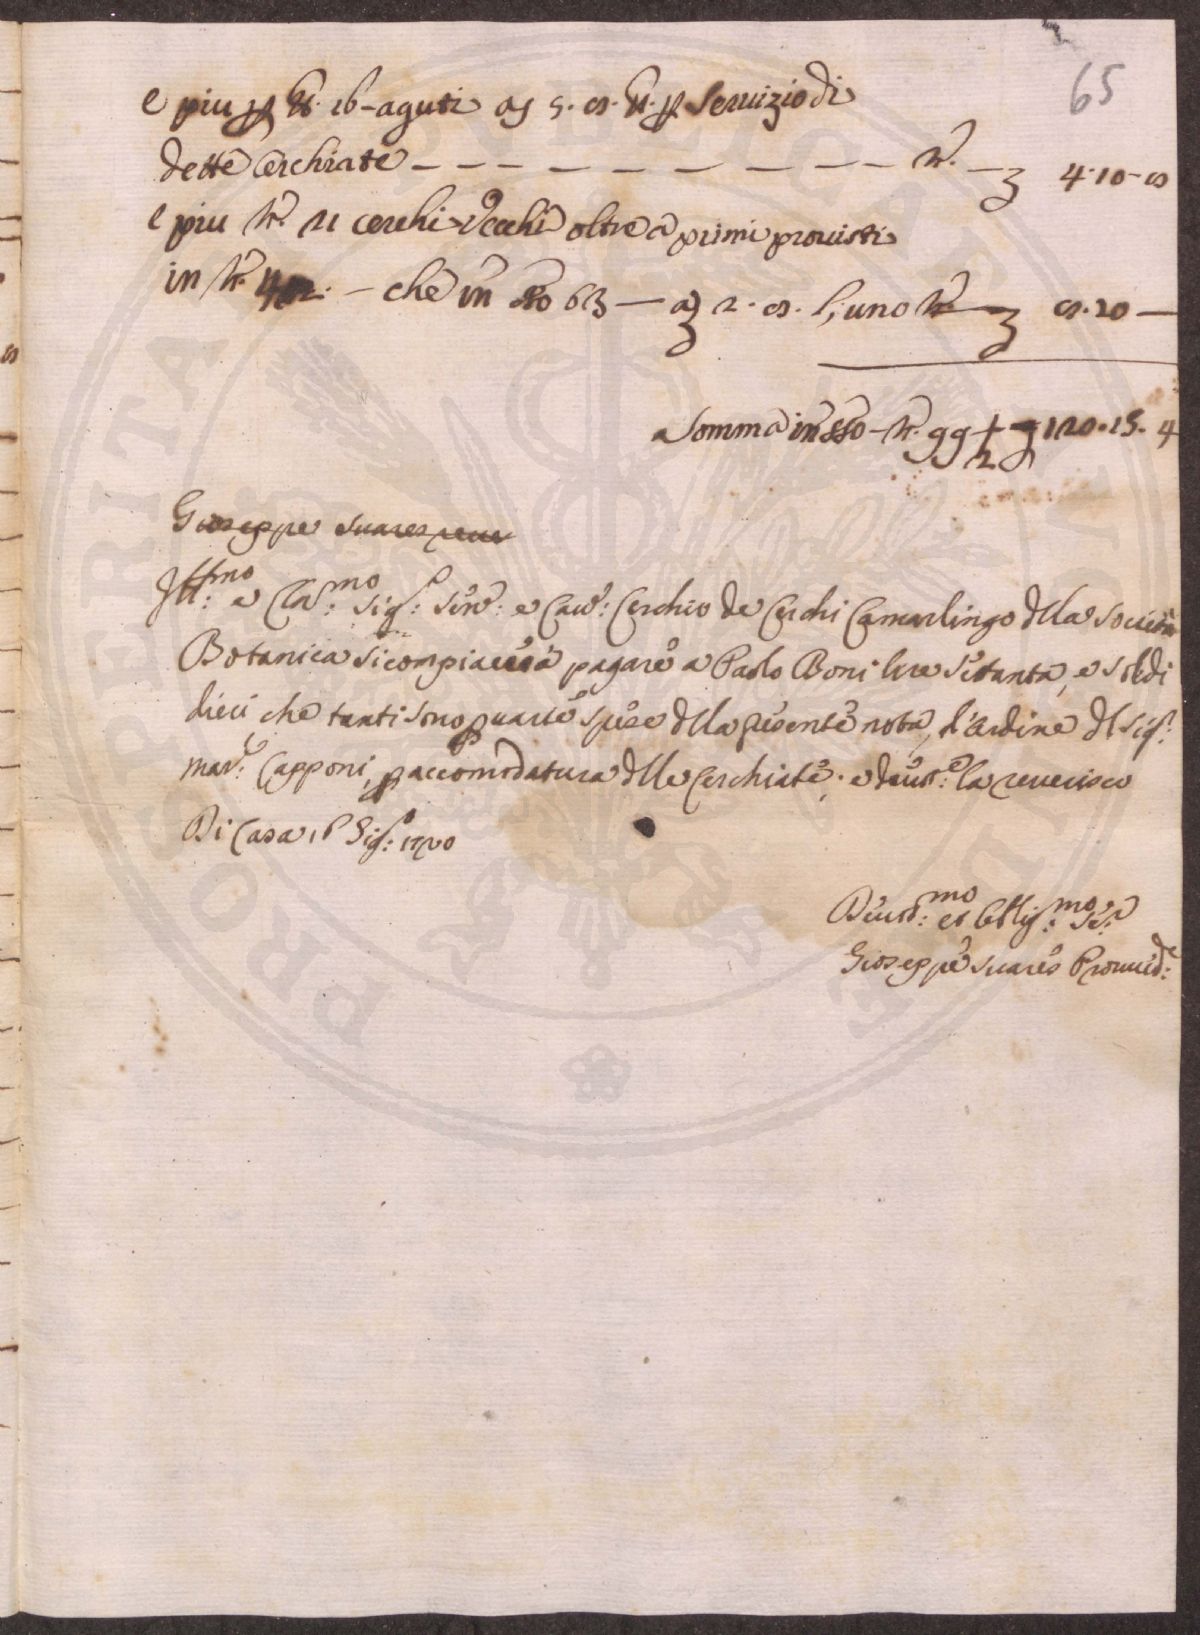 65
e piu p lb. 16 - aguti a s 5. cs. lb. p Seruizio di
dette Cerchiate — — — — — — — — — — lr. — 3 4.10 - cs
e piu lr. 21 cerchi Vecchi oltre a primi prouisti
in lr. 42. — che in tto 63 — a 3 2. cs. l'uno lr. — 3 cs. 20 —
Somma in tto - lr. 99 1/2 3 120.15.4
Gioseppe Suares
Ill:mo e Clar:mo Sig: Sen: e Cau: Cerchio de Cerchi Camarlingo della Società
Botanica si compiacerà pagare a Paolo Boni lire settanta, e soldi
dieci che tanti sono p uarie spese della presente nota, d'ordine del Sig:
mar: Capponi, p accomodatura delle Cerchiate; e deuot:e la reuerisco
Di Casa 16 Sig: 1720
Deuot:mo et Obblig:mo Se:
Gioseppe Suares Prouued:re
PUBLICAE
PROSPERITAS